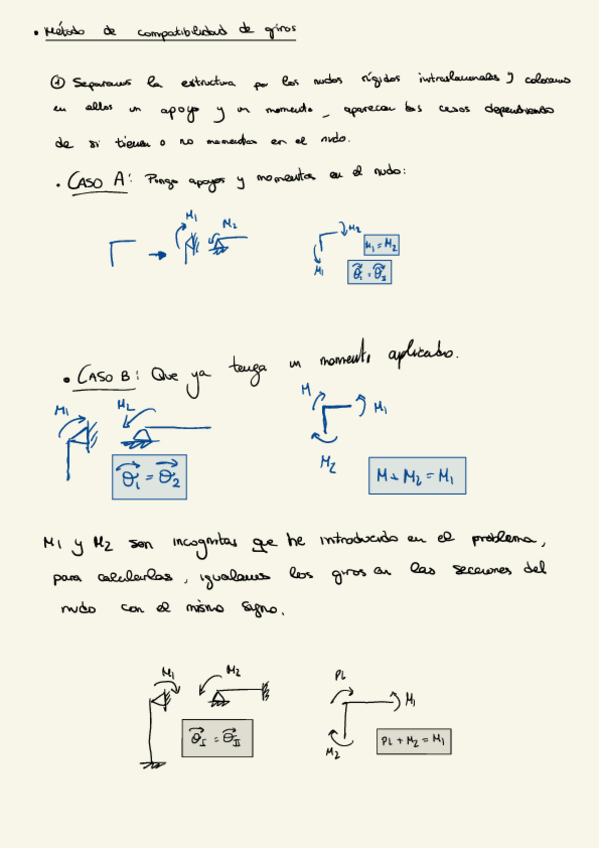 • Método de compatibilidad de giros
① Separamos la estructura por los nudos rígidos intraslacionales y colocamos
en ellos un apoyo y un momento, aparecen dos casos dependiendo
de si tienen o no momentos en el nudo.
• CASO A: Pongo apoyos y momentos en el nudo:
M1
M2
M2
M1
M1 = M2
θ1 = θ2
• CASO B: Que ya tenga un momento aplicado.
M1
M2
θ1 = θ2
M
M1
M2
M + M2 = M1
M1 y M2 son incognitas que he introducido en el problema,
para calcularlas, igualamos los giros en las secciones del
nudo con el mismo signo.
M1
M2
θI = θII
PL
M1
M2
PL + M2 = M1